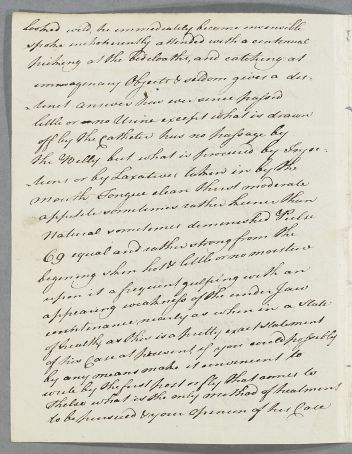 looked wild, he immediately became insensible
spoke incoherently attended with a continual
picking at the bedcloaths, and catching at
immagenary Objects & seldom gives a dis-
tinct answer has ever since passed
little or no Urine except what is drawn
off by the Catheter has no passage by
the Belly but what is procured by Injec-
tions or by Laxatives taken in by the
mouth Tongue clean thirst moderate
appetite sometimes rather keener than
Natural sometimes demenished Pulse
69 equal and rather strong from the
begining skin hot & little or no moisture
upon it a frequent gulping with an
appearing weakness of the under Jaw
countenance nearly as when in a State
of health, as this is a pretty exact statement
of his Case at present if you could possibly
by any means make it convenient to
write by the first post or fly that comes to
what is the only method of treatment
to be pursued & your openion of his Case